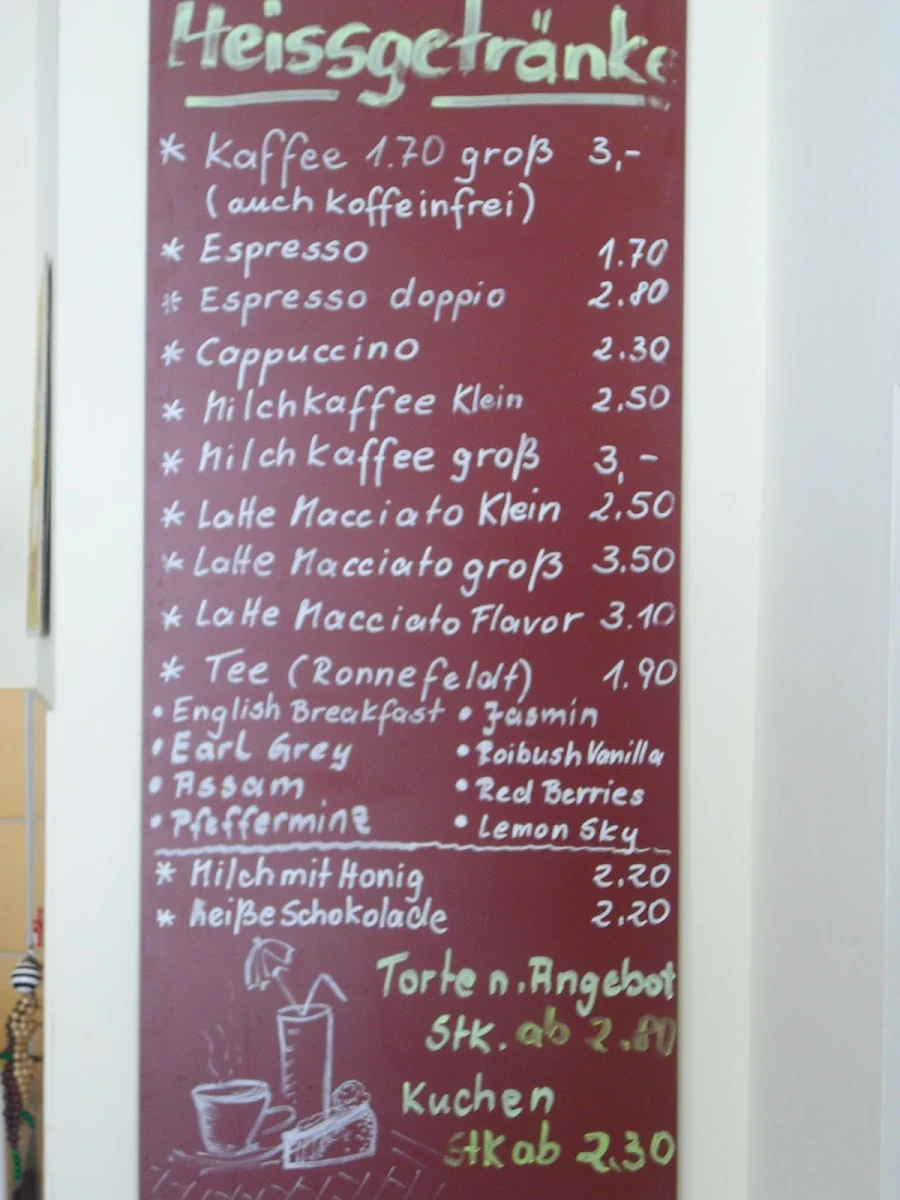 Heissgetränke
* Kaffee 1.70 groß 3,-
(auch koffeinfrei)
* Espresso 1.70
* Espresso doppio 2.80
* Cappuccino 2.30
* Milchkaffee Klein 2.50
* Milchkaffee groß 3,-
* Latte Macciato Klein 2.50
* Latte Macciato groß 3.50
* Latte Macciato Flavor 3.10
* Tee (Ronnefeldt) 1.90
• English Breakfast • Jasmin
• Earl Grey • Roibush Vanilla
• Assam • Red Berries
• Pfefferminz • Lemon Sky
* Milch mit Honig 2.20
* heiße Schokolade 2.20
Torte n. Angebot
Stk. ab 2.80
Kuchen
Stk ab 2.30